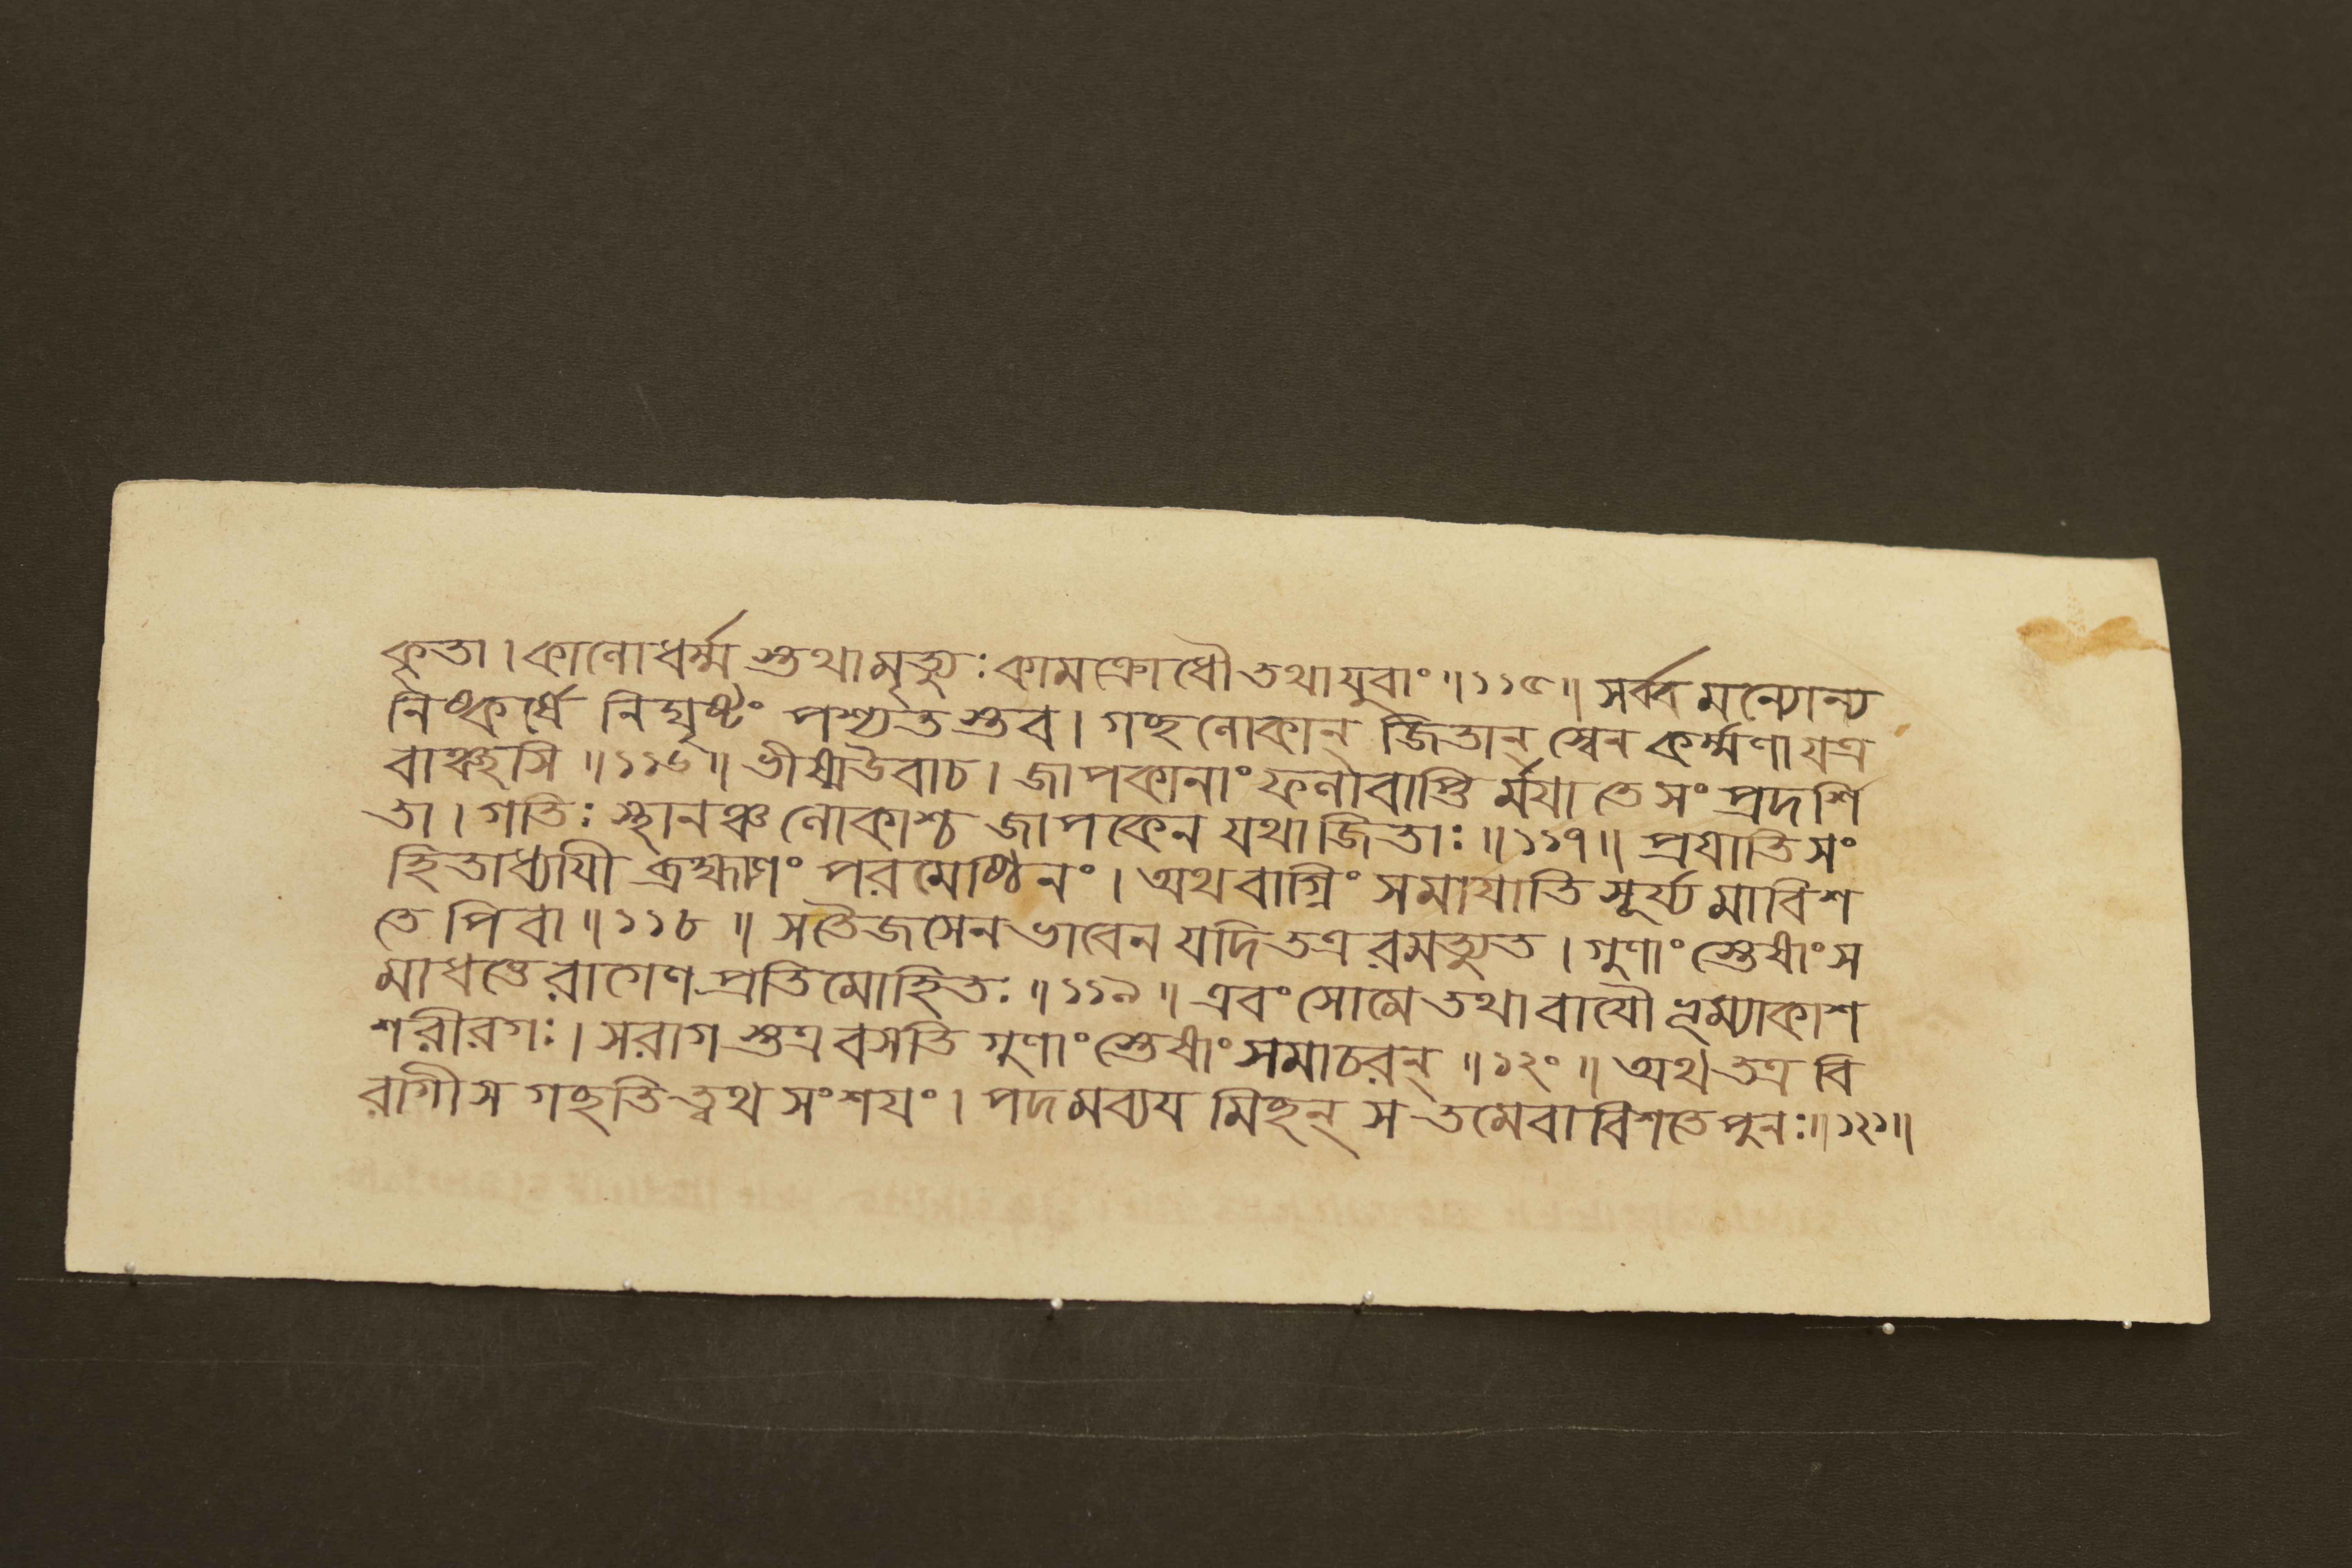 কৃতা। কালোধর্ম্মস্তথামৃত্যুঃকামক্রোধৌতথাযুবাং॥১১৫॥ সর্ব্বমন্যোন্য
নিষ্কর্ষে নিঘৃষ্টং পশ্যতস্তব। গচ্ছলোকান্ জিতান্ স্বেন কর্ম্মণা যত্র
বাঞ্ছসি॥১১৬॥ ভীষ্মউবাচ। জাপকানাং ফলাবাপ্তির্ম্ময়া তে সংপ্রদর্শি
তা। গতিঃ স্থানঞ্চ লোকাশ্চ জাপকেন যথা জিতাঃ॥১১৭॥ প্রয়াতি সং
হিতাধ্যায়ী ব্রহ্মাণং পরমেষ্ঠিনং। অথবাগ্নিং সমায়াতি সূর্য্যমাবিশ
তেপিবা॥১১৮॥ সতৈজসেন ভাবেন যদি তত্র রমত্যুত। গুণাংস্তেষাংস
মাধত্তে রাগেণ প্রতিমোহিতঃ॥১১৯॥ এবং সোমে তথা বায়ৌ ভূম্যাকাশ
শরীরগঃ। সরাগস্তত্র বসতি গুণাংস্তেষাং সমাচরন্॥১২০॥ অথ তত্র বি
রাগীস গচ্ছতি ত্বথ সংশয়ং। পদমব্যয়মিচ্ছন্ স তমেবাবিশতে পুনঃ॥১২১॥